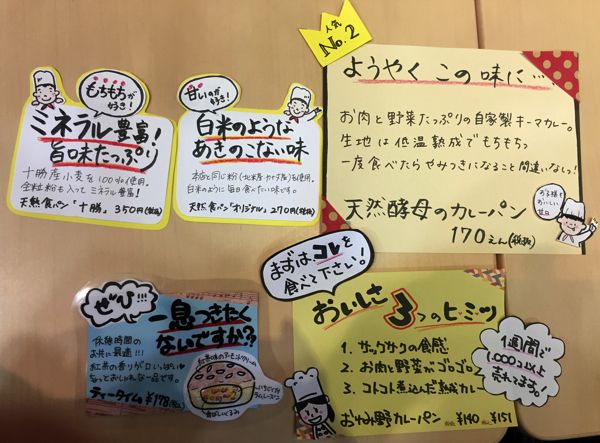 もちもちが
好き!
ミネラル豊富!
旨味たっぷり
十勝産小麦を100%使用。
全粒粉も入ってミネラル豊富!
天然食パン「十勝」 350円(税抜)
甘いのが
好き!
白米のような
あきのこない味
白米のように毎日食べたい味です。
天然食パン「オリジナル」 270円(税抜)
人気
No.2
ようやくこの味に…
お肉と野菜たっぷりの自家製キーマカレー。
生地は低温熟成でもちもちっ
一度食べたらやみつきになること間違いなしっ!
天然酵母のカレーパン
170えん(税抜)
お子様も
おいしい
甘口
ぜひ!!!
一息つきたく
ないですか?
休憩時間の
お共に最適!!!
紅茶の香りが口いっぱい
ちょっとおしゃれな一品です。
ティータイム ¥178(税込)
紅茶味のアーモンドクリーム
香ばしいくるみ
まずはコレを
食べて下さい!
おいしさ3つのヒ・ミ・ツ
1. サックサクの食感
2. お肉と野菜がゴロゴロ
3. コトコト煮込んだ熟成カレー
おやみ野カレーパン 税抜¥140 税込¥151
1週間で
1,000コ以上
売れてます。